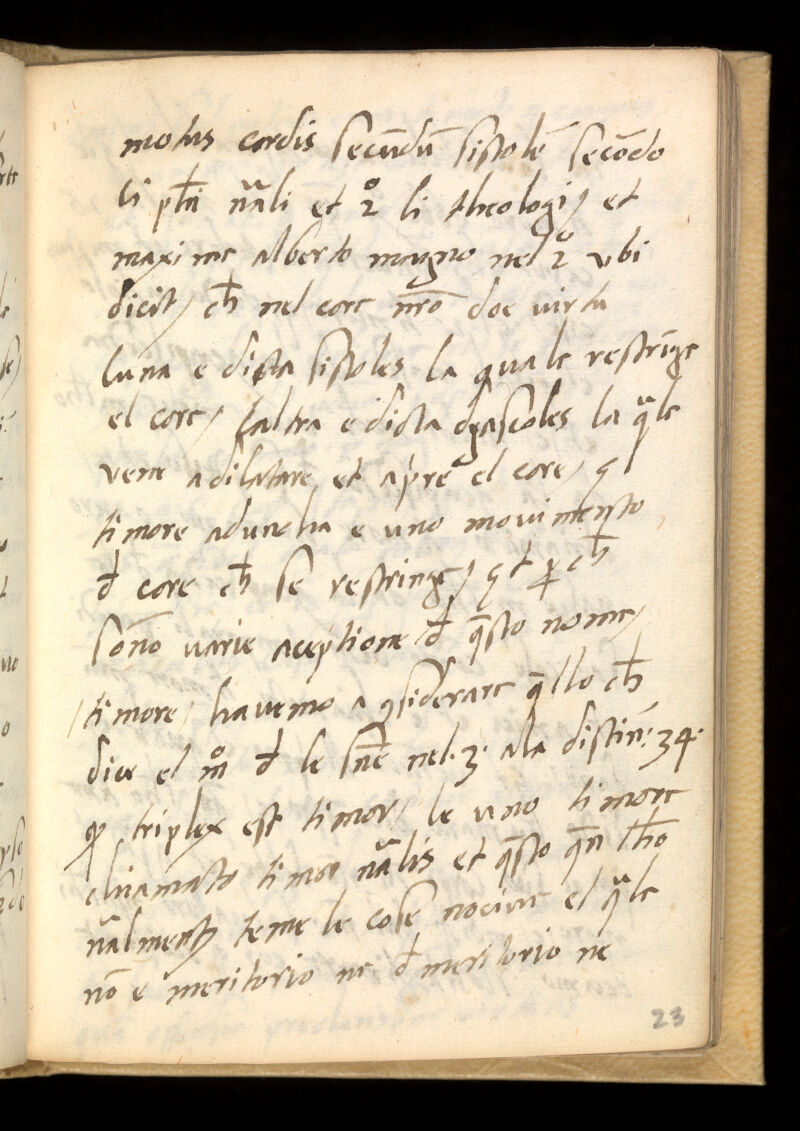 motus cordis secūdū sistolē secōdo
li ph̄i nāli et 2º li theologi / et
maxime alberto magno nel 2º vbi
dicit / ch̄ nel core nr̄o doe uirtu
luna e dicta sistoles la quale restrīge
el core / laltra e dicta dyascoles la q̄le
vene adilatare et apre el core /
timore adunc̄ha e uno mouimento
đ core ch̄ se restringe / et p ch̄
sōno uarie aceptione đ q̄sto nome /
/ timore / hauemo a ꝯsiderare q̄llo ch̄
dice el mº đ le sn̄e nel .3. ala distin̄: 34.
ꝙ triplex est timor / le uno timore
chiamato timor nālis et q̄sto q̄n lhō
nālmentȝ teme le cose nociue el q̄le
nō e meritorio ne đmeritorio ne
23